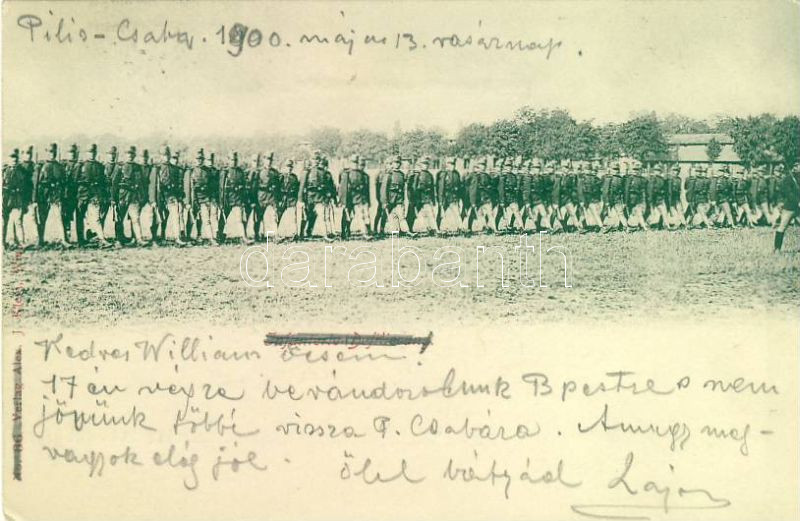 Pilis-Csaba. 1900. május 13. vasárnap.
darabanth
Kedves William öcsém!
17én végre bevándorolunk Bpestre s nem
jövünk többé vissza P. Csabára. Amugy meg-
vagyok elég jól. Ölel bátyád Lajos
Verlag Alex. J.